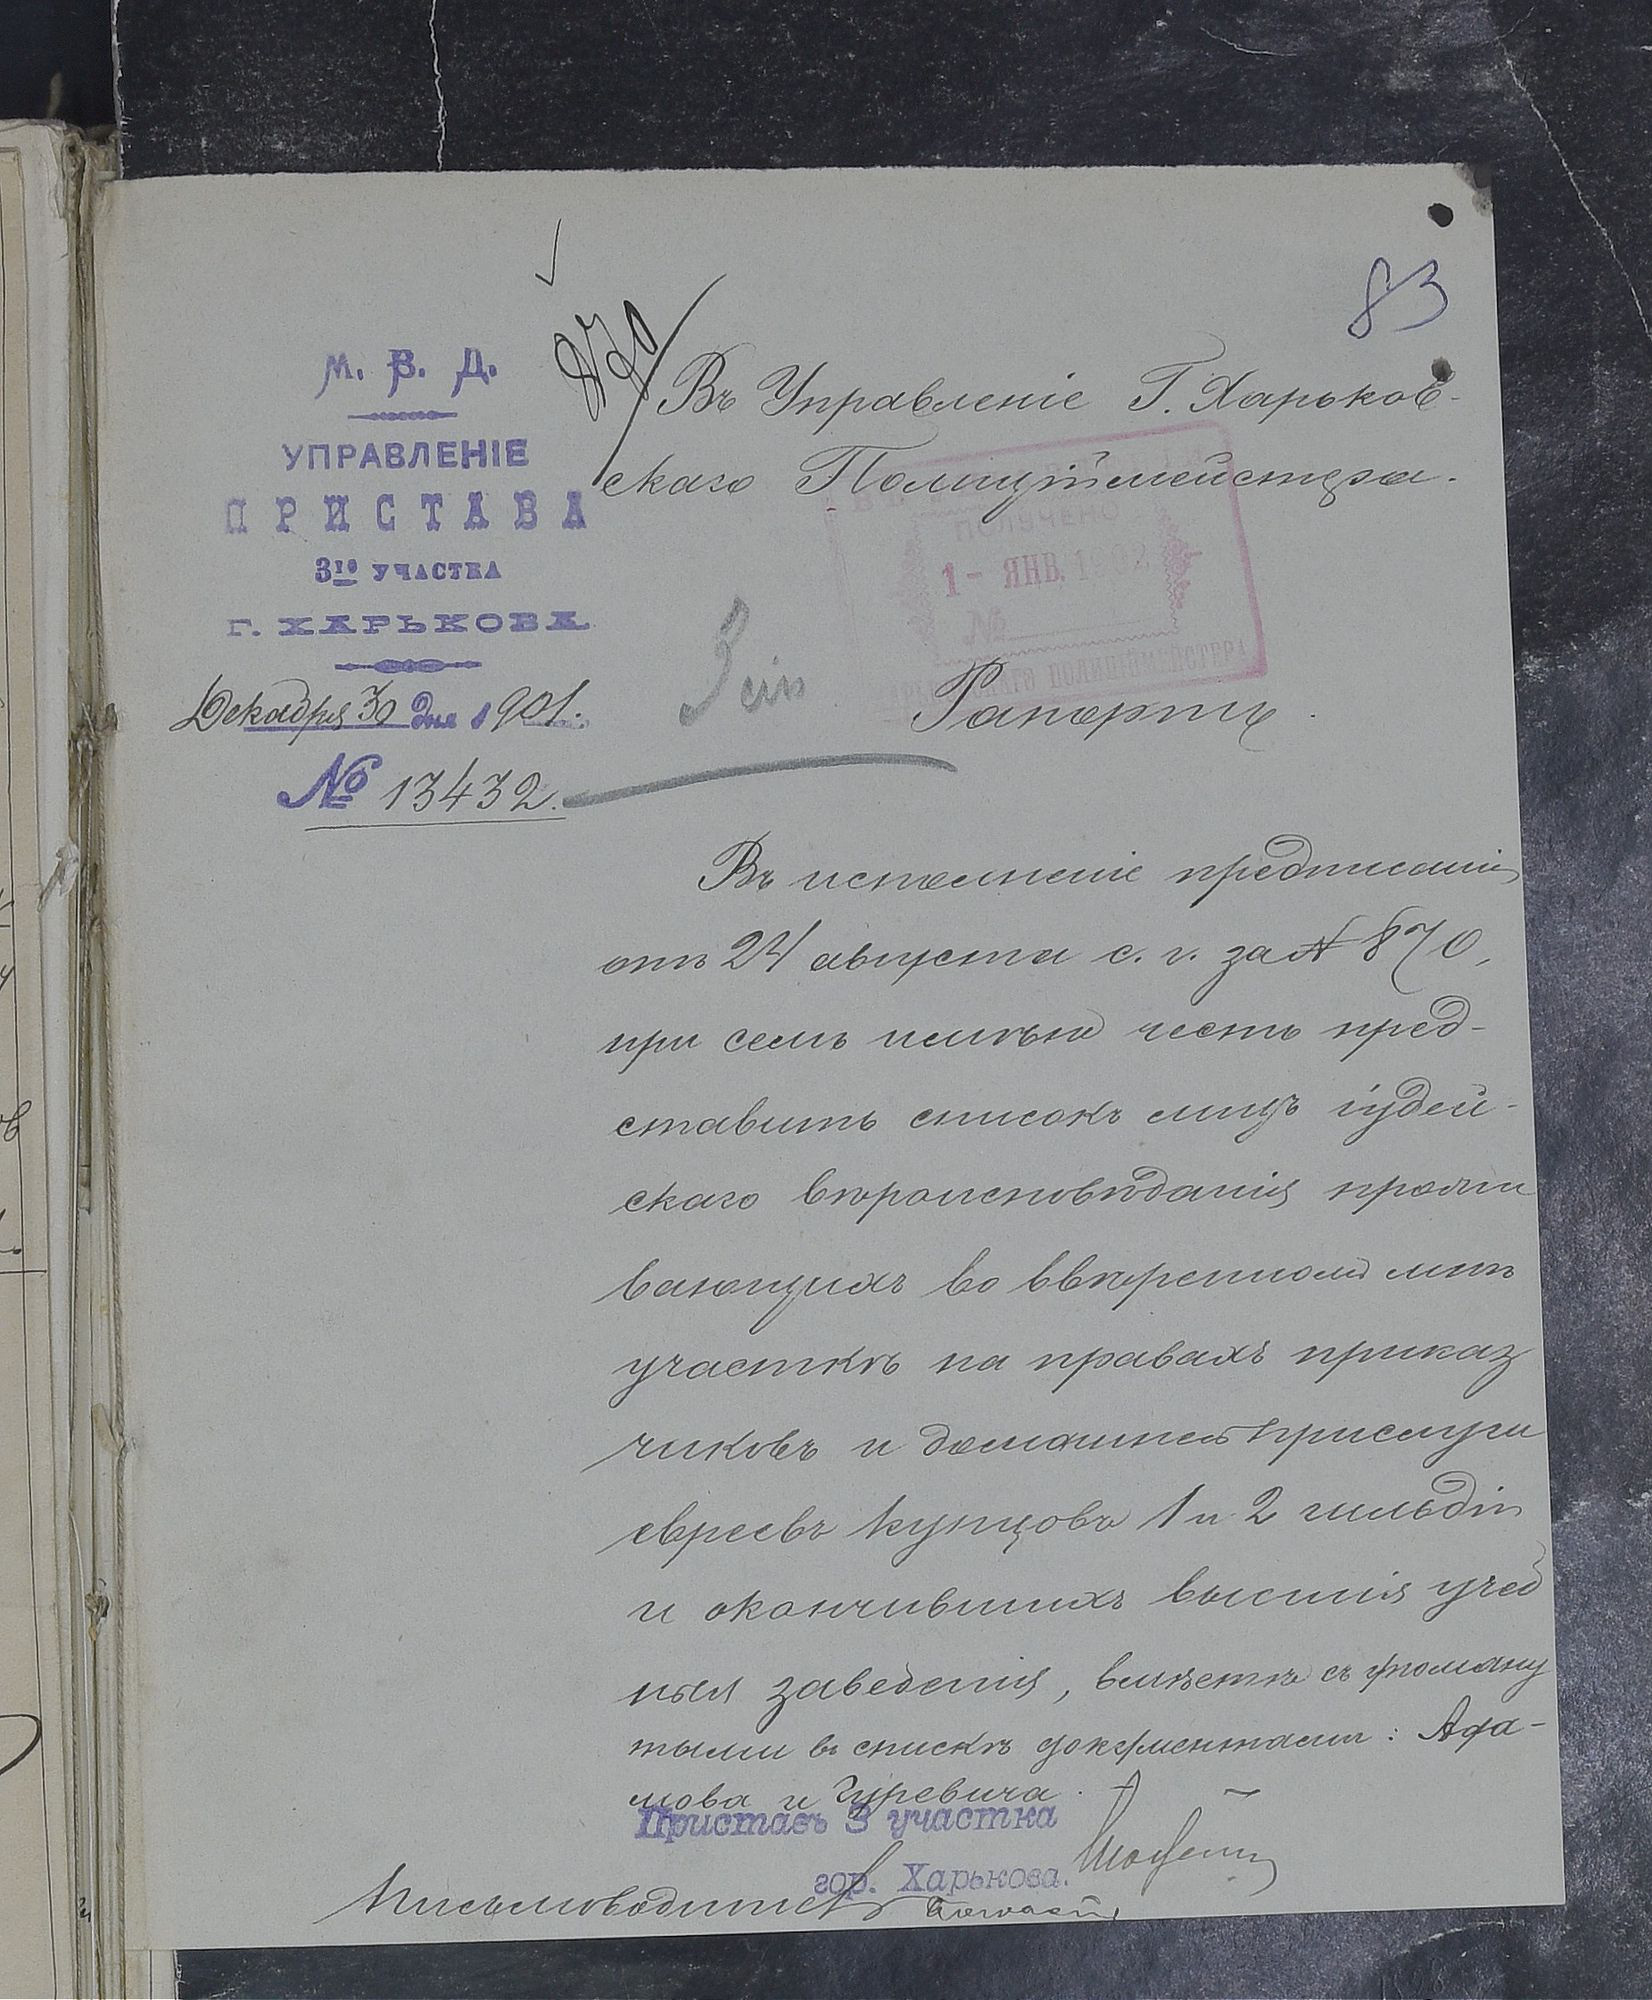 83
М. В. Д.
УПРАВЛЕНІЕ
ПРИСТАВА
3го УЧАСТКА
Г. ХАРЬКОВА
Декабря 30 дня 1901.
№ 13432.
870
Въ Управленіе Г. Харьков-
скаго Полиціймейстера.
ПОЛУЧЕНО
1 - ЯНВ. 1902
№
ПОЛИЦІЙМЕЙСТЕРА
Рапортъ.
Въ исполненіе предписанія
отъ 24 августа с. г. за № 870,
при семъ имѣю честь пред-
ставить списокъ лицъ іудей-
скаго вѣроисповѣданія прожи
вающихъ во ввѣренномъ мнѣ
участкѣ на правахъ приказ
чиковъ и домашней прислуги
евреевъ купцовъ 1 и 2 гильдіи
и окончившихъ высшія учеб
ныя заведенія, вмѣстѣ съ упомяну
тыми въ спискѣ документами: Ада-
мова и Гуревича.
Приставъ 3 участка
гор. Харькова.
Письмоводитель